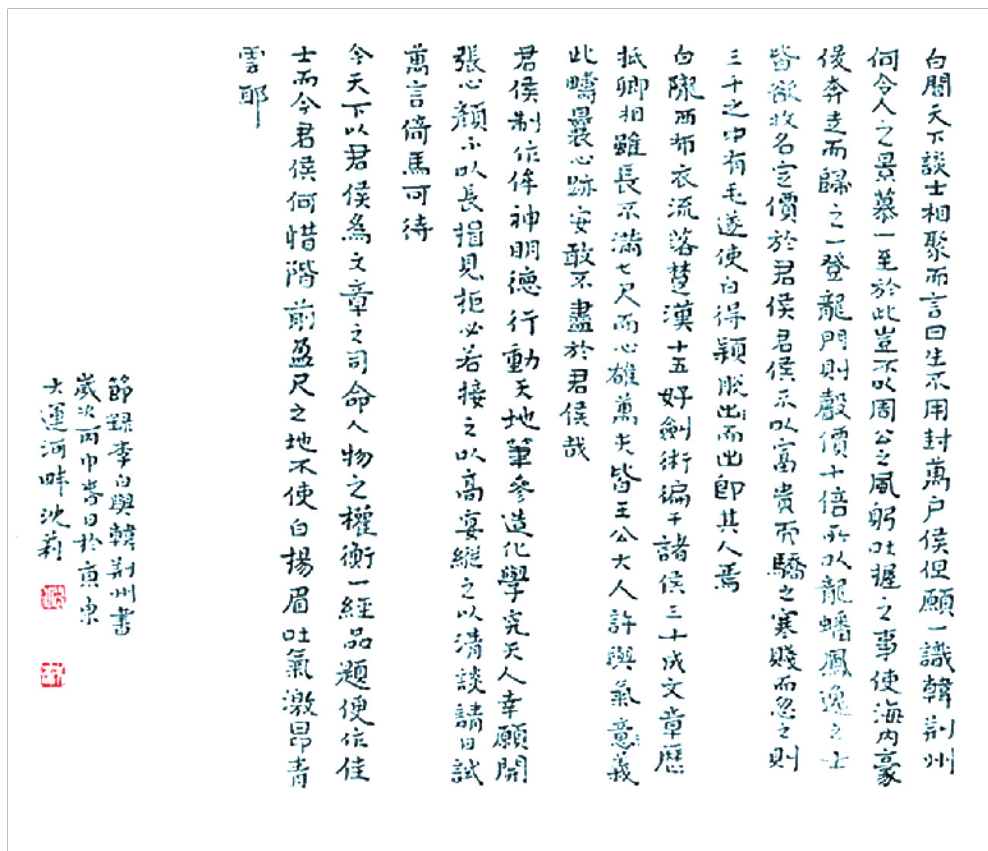 白聞天下談士相聚而言曰生不用封萬户侯但願一識韓荆州
何令人之景慕一至於此豈不以周公之風躬吐握之事使海内豪
俊奔走而歸之一登龍門則聲價十倍所以龍蟠鳳逸之士
皆欲收名定價於君侯君侯不以富貴而驕之寒賤而忽之則
三千之中有毛遂使白得穎脱而出即其人焉
白隴西布衣流落楚漢十五好劍術徧干諸侯三十成文章歷
抵卿相雖長不滿七尺而心雄萬夫皆王公大人許與氣義
此疇曩心跡安敢不盡於君侯哉
君侯制作侔神明德行動天地筆參造化學究天人幸願開
張心顔不以長揖見拒必若接之以高宴縱之以清談請日試
萬言倚馬可待
今天下以君侯爲文章之司命人物之權衡一經品題便作佳
士而今君侯何惜階前盈尺之地不使白揚眉吐氣激昂青
雲耶
節録李白與韓荆州書
歲次丙申春日於京東
大運河畔沈莉